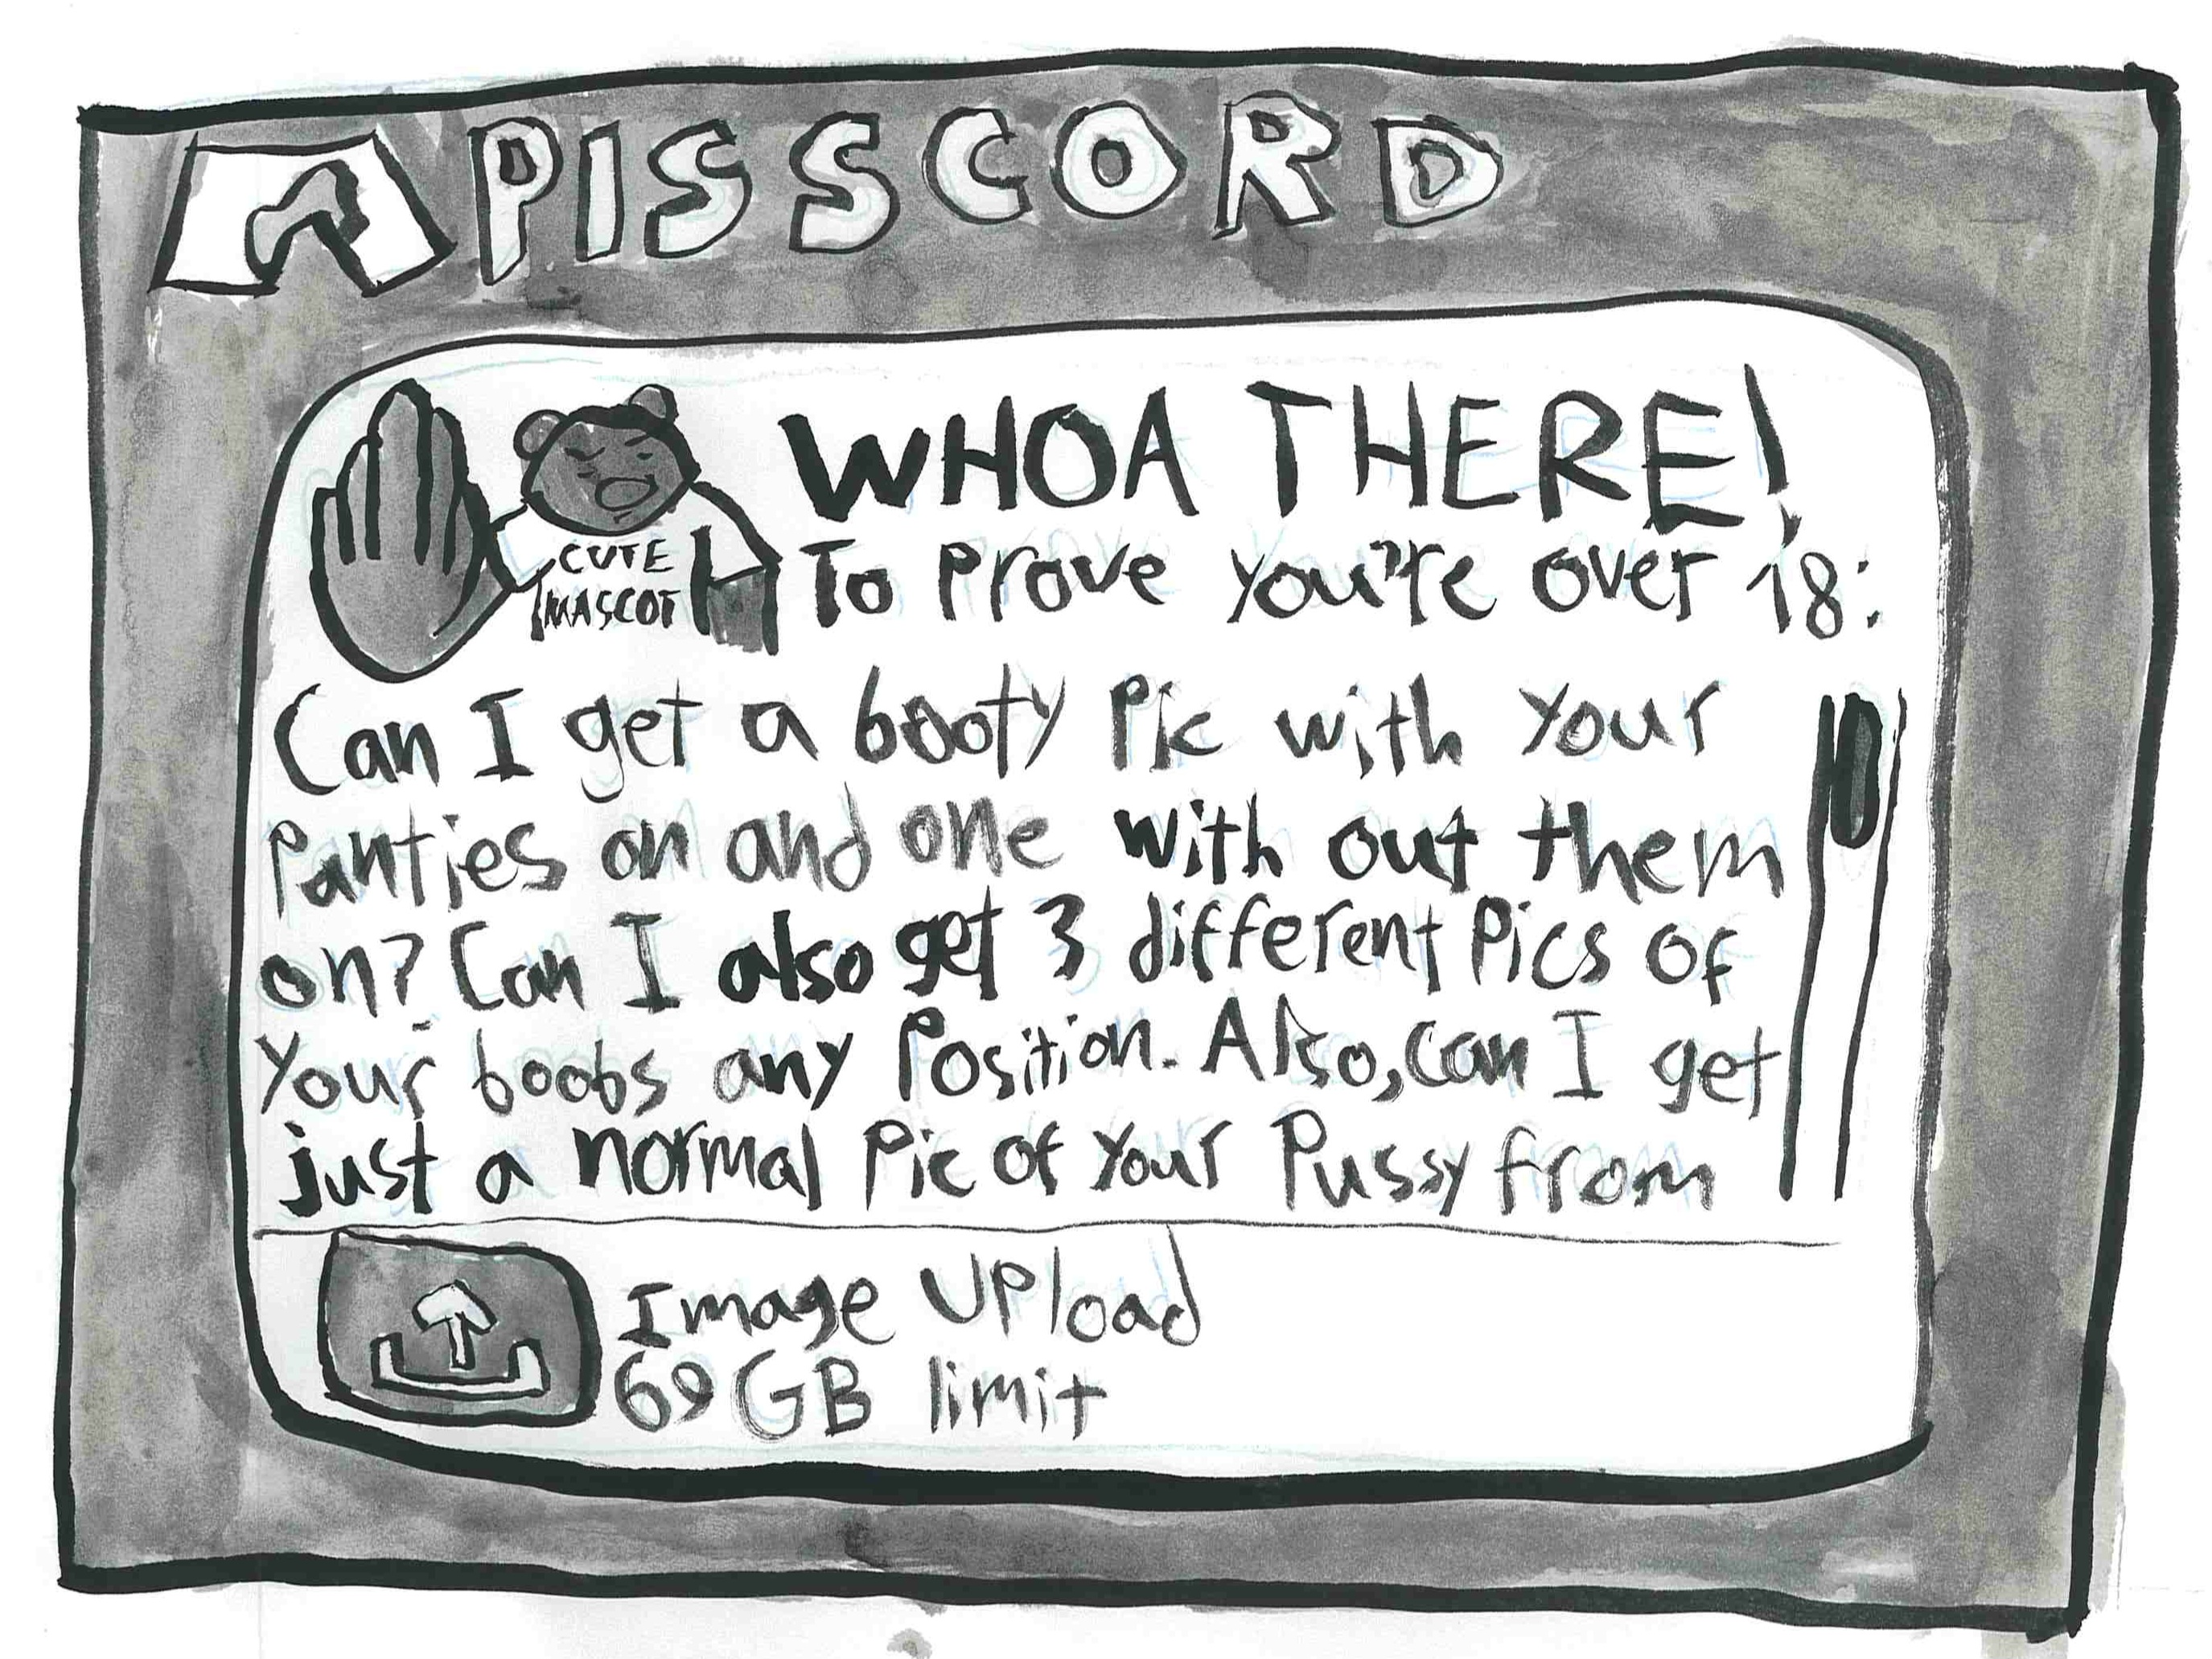 PISSCORD
CUTE
MASCOT
WHOA THERE!
To prove you're over 18:
Can I get a booty pic with your
panties on and one with out them
on? Can I also get 3 different pics of
your boobs any position. Also, can I get
just a normal pic of your pussy from
Image Upload
69GB limit